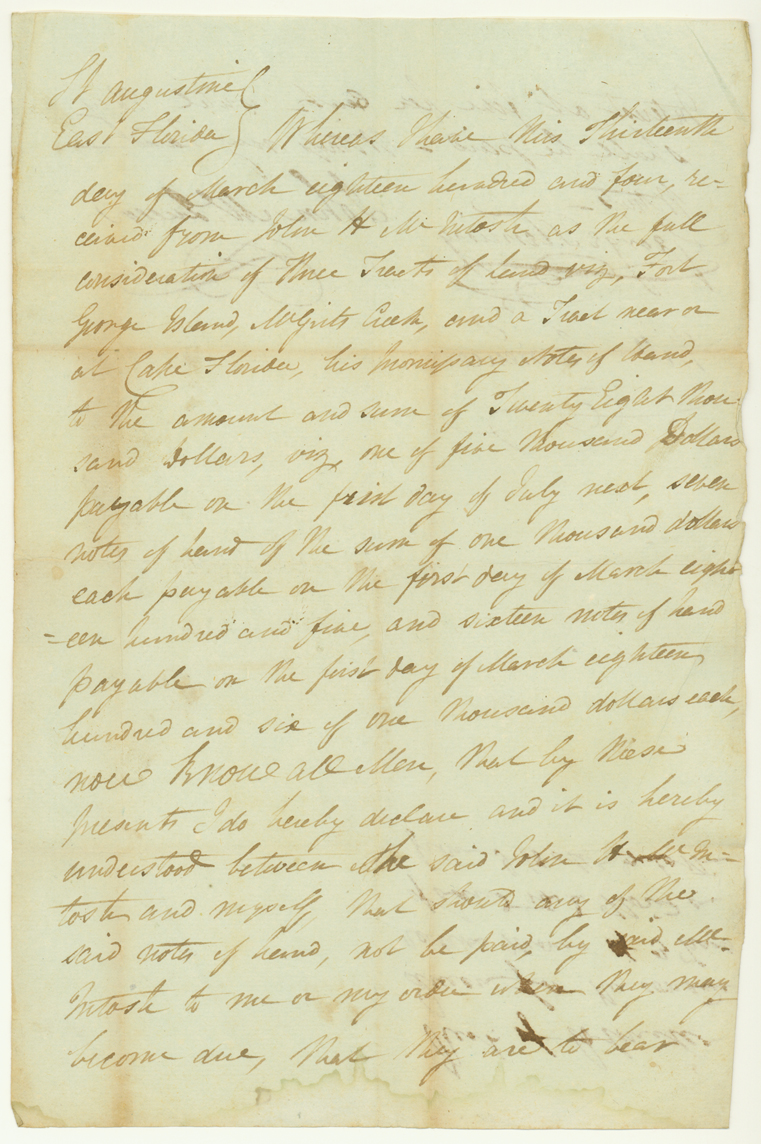 St Augustine
East Florida} Whereas I have this Thirteenth
day of March eighteen hundred and four, re=
ceived from John H McIntosh as the full
consideration of three Tracts of land viz, Fort
George Island, McGirts Creek, and a Tract near or
at Cape Florida, his promissary Notes of Hand,
to the amount and sum of Twenty Eight thou
sand dollars, viz, one of five thousand Dollars
payable on the first day of July next, seven
notes of hand of the sum of one thousand dollars
each payable on the first day of March eight
=een hundred and five, and sixteen notes of hand
payable on the first day of March eighteen
hundred and six of one thousand dollars each,
now Know all Men, that by these
presents I do hereby declare and it is hereby
understood between the said John H McIn=
tosh and myself, that should any of the
said notes of hand, not be paid, by said Mc
Intosh to me or my order when they may
become due, that they are to bear